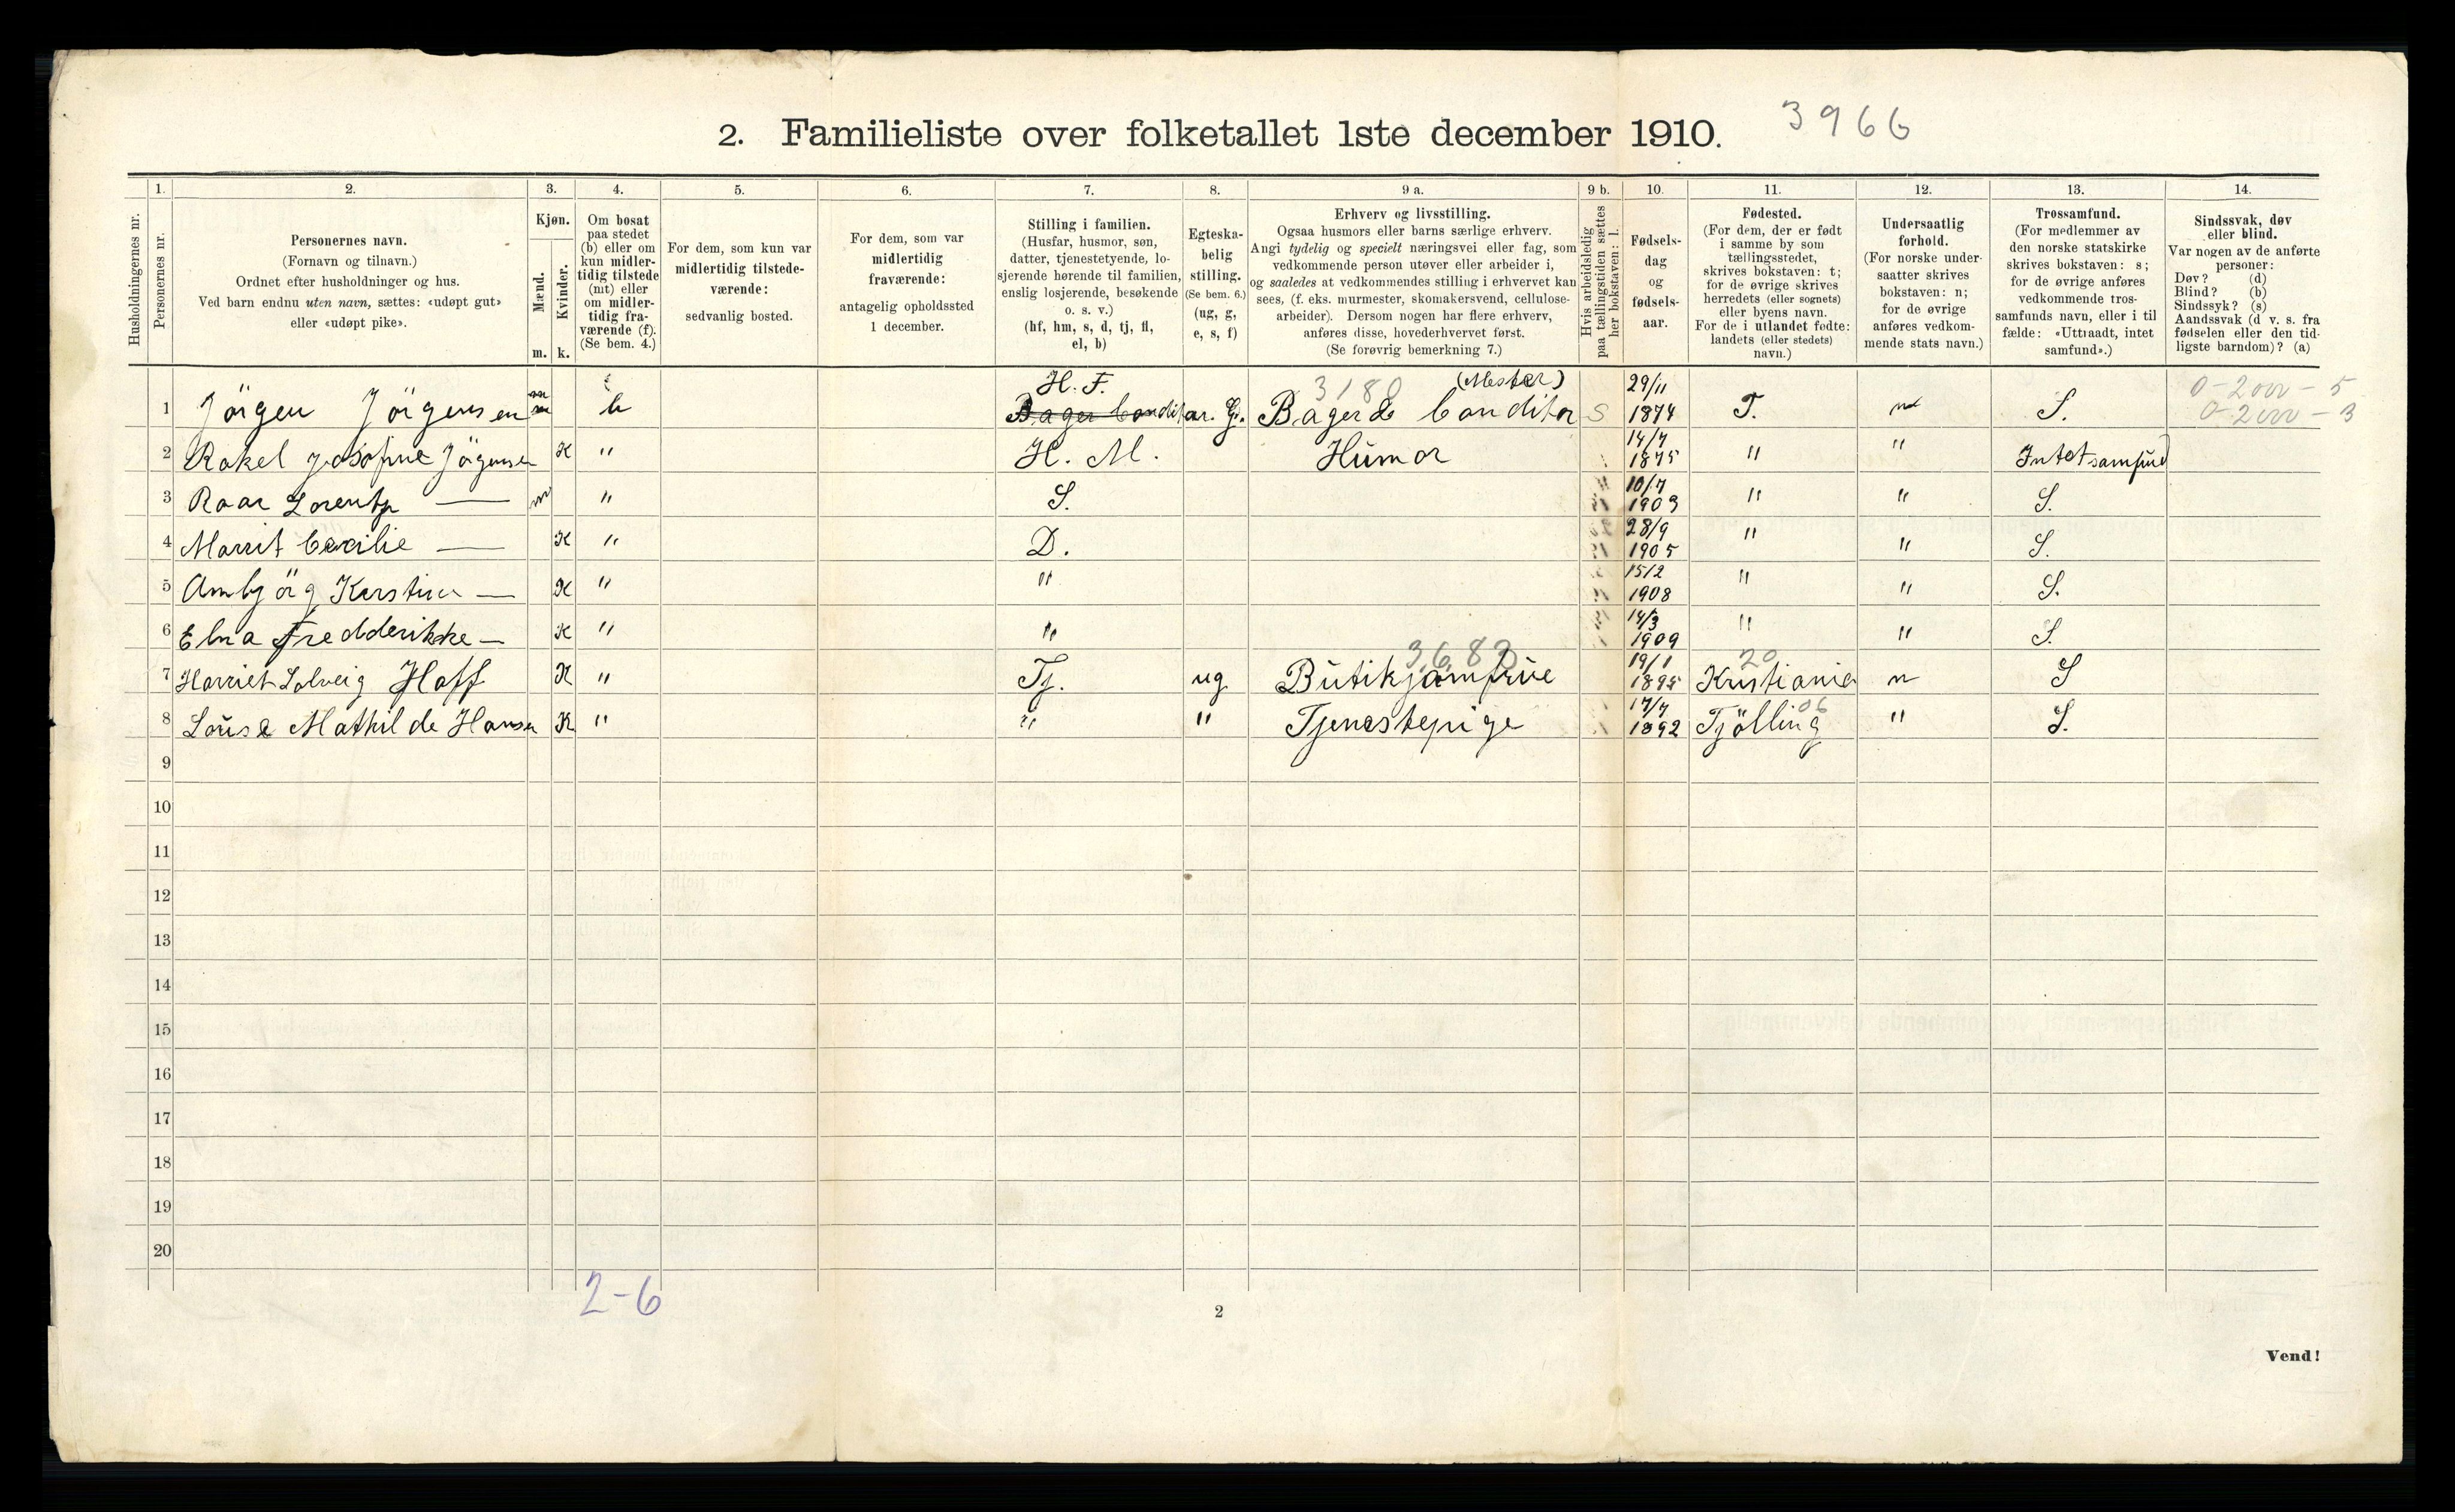 2. Familieliste over folketallet 1ste december 1910. 3966
1. 2. 3. 4. 5. 6. 7. 8. 9 a. 9 b. 10. 11. 12. 13. 14.
Husholdningernes nr.
Personernes nr.
Personernes navn.
(Fornavn og tilnavn.)
Ordnet efter husholdninger og hus.
Ved barn endnu uten navn, sættes: «udøpt gut»
eller «udøpt pike».
Kjøn.
Mænd.
Kvinder.
m. k.
Om bosat
paa stedet
(b) eller om
kun midler-
tidig tilstede
(mt) eller
om midler-
tidig fra-
værende (f).
(Se bem. 4.)
For dem, som kun var
midlertidig tilstede-
værende:
sedvanlig bosted.
For dem, som var
midlertidig
fraværende:
antagelig opholdssted
1 december.
Stilling i familien.
(Husfar, husmor, søn,
datter, tjenestetyende, lo-
sjerende hørende til familien,
enslig losjerende, besøkende
o. s. v.)
(hf, hm, s, d, tj, fl,
el, b)
Egteska-
belig
stilling.
(Se bem. 6.)
(ug, g,
e, s, f)
Erhverv og livsstilling.
Ogsaa husmors eller barns særlige erhverv.
Angi tydelig og specielt næringsvei eller fag, som
vedkommende person utøver eller arbeider i,
og saaledes at vedkommendes stilling i erhvervet kan
sees, (f. eks. murmester, skomakersvend, cellulose-
arbeider). Dersom nogen har flere erhverv,
anføres disse, hovederhvervet først.
(Se forøvrig bemerkning 7.)
Hvis arbeidsledig
paa tællingstiden sættes
her bokstaven: l.
Fødsels-
dag
og
fødsels-
aar.
Fødested.
(For dem, der er født
i samme by som
tællingsstedet,
skrives bokstaven: t;
for de øvrige skrives
herredets (eller sognets)
eller byens navn.
For de i utlandet fødte:
landets (eller stedets)
navn.)
Undersaatlig
forhold.
(For norske under-
saatter skrives
bokstaven: n;
for de øvrige
anføres vedkom-
mende stats navn.)
Trossamfund.
(For medlemmer av
den norske statskirke
skrives bokstaven: s;
for de øvrige anføres
vedkommende tros-
samfunds navn, eller i til
fælde: «Uttraadt, intet
samfund».)
Sindssvak, døv
eller blind.
Var nogen av de anførte
personer:
Døv? (d)
Blind? (b)
Sindssyk? (s)
Aandssvak (d v. s. fra
fødselen eller den tid-
ligste barndom)? (a)
H. F. 3180 (Mester) 29/11
1 Jörgen Jörgensen m b Bager Conditar. G. Bager & Conditor S 1874 T. n S.
14/7
2 Rakel Josofine Jörgensen K " H. M. Húmor 1875 " " Intet samfund
10/7
3 Roar Lorentz — m " S. 1903 " " S.
28/9
4 Marrit Cecilie — K " D. 1905 " " S.
15/2
5 Ambjörg Kerstine — K " " 1908 " " S.
14/3
6 Elna Fredderikke — K " " 1909 " " S.
3683 19/1 20
7 Harriet Solveig Hoff K " Tj. ug Bútikjomfrúe 1895 Kristiania n S
17/7 06
8 Loúse Mathilde Hansen K " " " Tjenestepige 1892 Tjölling " S.
9
10
11
12
13
14
15
16
17
18
19
20
2-6
2
Vend!